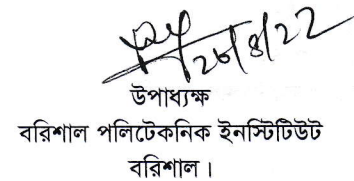 ২৮/৪/২২
উপাধ্যক্ষ
বরিশাল পলিটেকনিক ইনস্টিটিউট
বরিশাল।